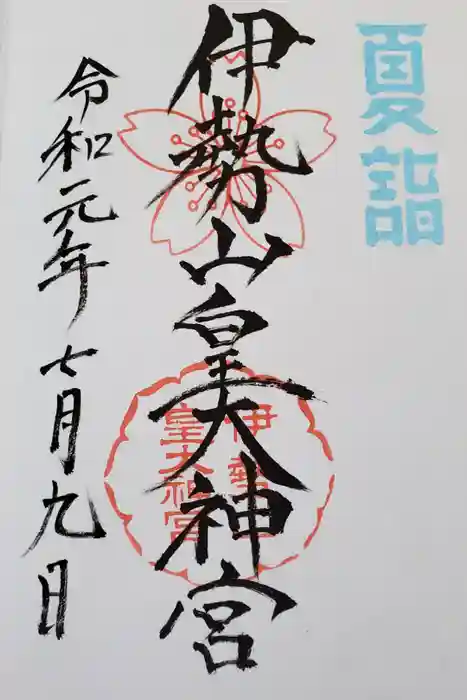 夏詣
伊勢山皇大神宮
伊勢山
皇大神宮
令和元年七月九日